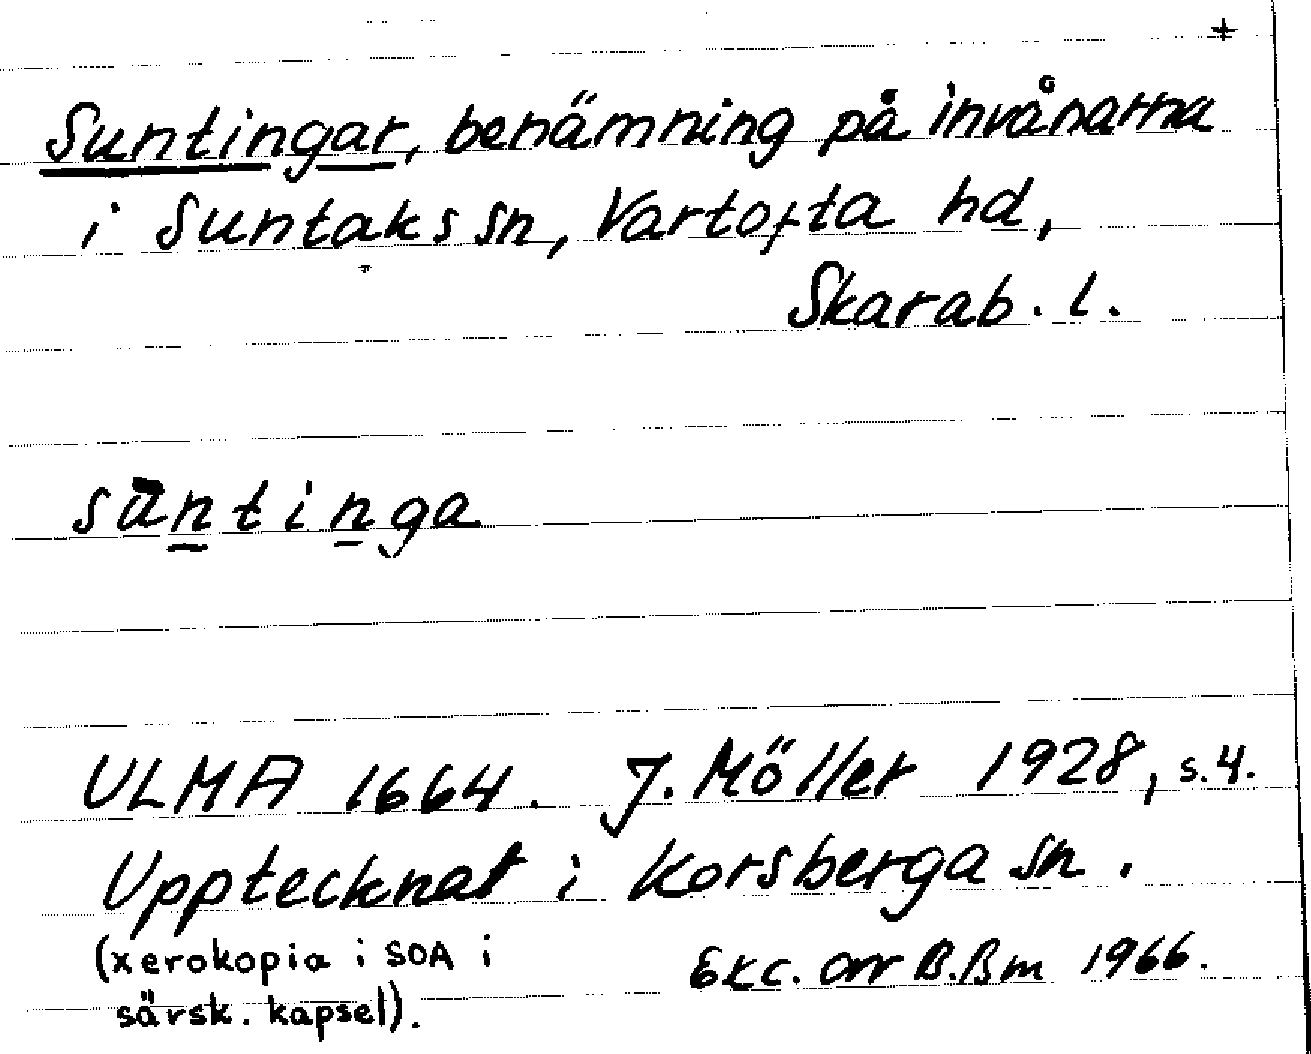 +
Suntingar, benämning på invånarna
i Suntaks sn, Vartofta hd,
Skarab. l.
suntinga
ULMA 1664. J. Möller 1928, s. 4.
Upptecknat i Korsberga sn.
(xerokopia i SOA i
särsk. kapsel).
Exc. av B. Bm 1966.